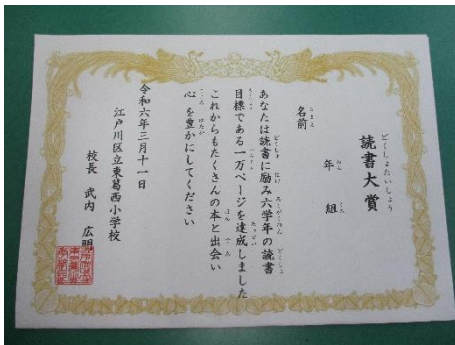 読書大賞
どくしょたいしょう
年 組
ねん くみ
名前
なまえ
あなたは読書に励み六学年の読書
目標である一万ページを達成しました
これからもたくさんの本と出会い
心を豊かにしてください
令和六年三月十一日
江戸川区立東葛西小学校
校長 武内 広明